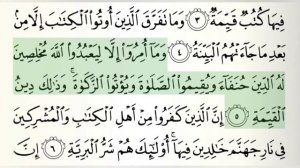 فِيهَا كُتُبٌ قَيِّمَةٌ ٣ وَمَا تَفَرَّقَ الَّذِينَ أُوتُوا الْكِتَابَ إِلَّا مِنْ
بَعْدِ مَا جَاءَتْهُمُ الْبَيِّنَةُ ٤ وَمَا أُمِرُوا إِلَّا لِيَعْبُدُوا اللَّهَ مُخْلِصِينَ
لَهُ الدِّينَ حُنَفَاءَ وَيُقِيمُوا الصَّلَوٰةَ وَيُؤْتُوا الزَّكَوٰةَ ۚ وَذَٰلِكَ دِينُ
الْقَيِّمَةِ ٥ إِنَّ الَّذِينَ كَفَرُوا مِنْ أَهْلِ الْكِتَابِ وَالْمُشْرِكِينَ
فِي نَارِ جَهَنَّمَ خَالِدِينَ فِيهَا ۚ أُولَٰئِكَ هُمْ شَرُّ الْبَرِيَّةِ ٦ إِنَّ